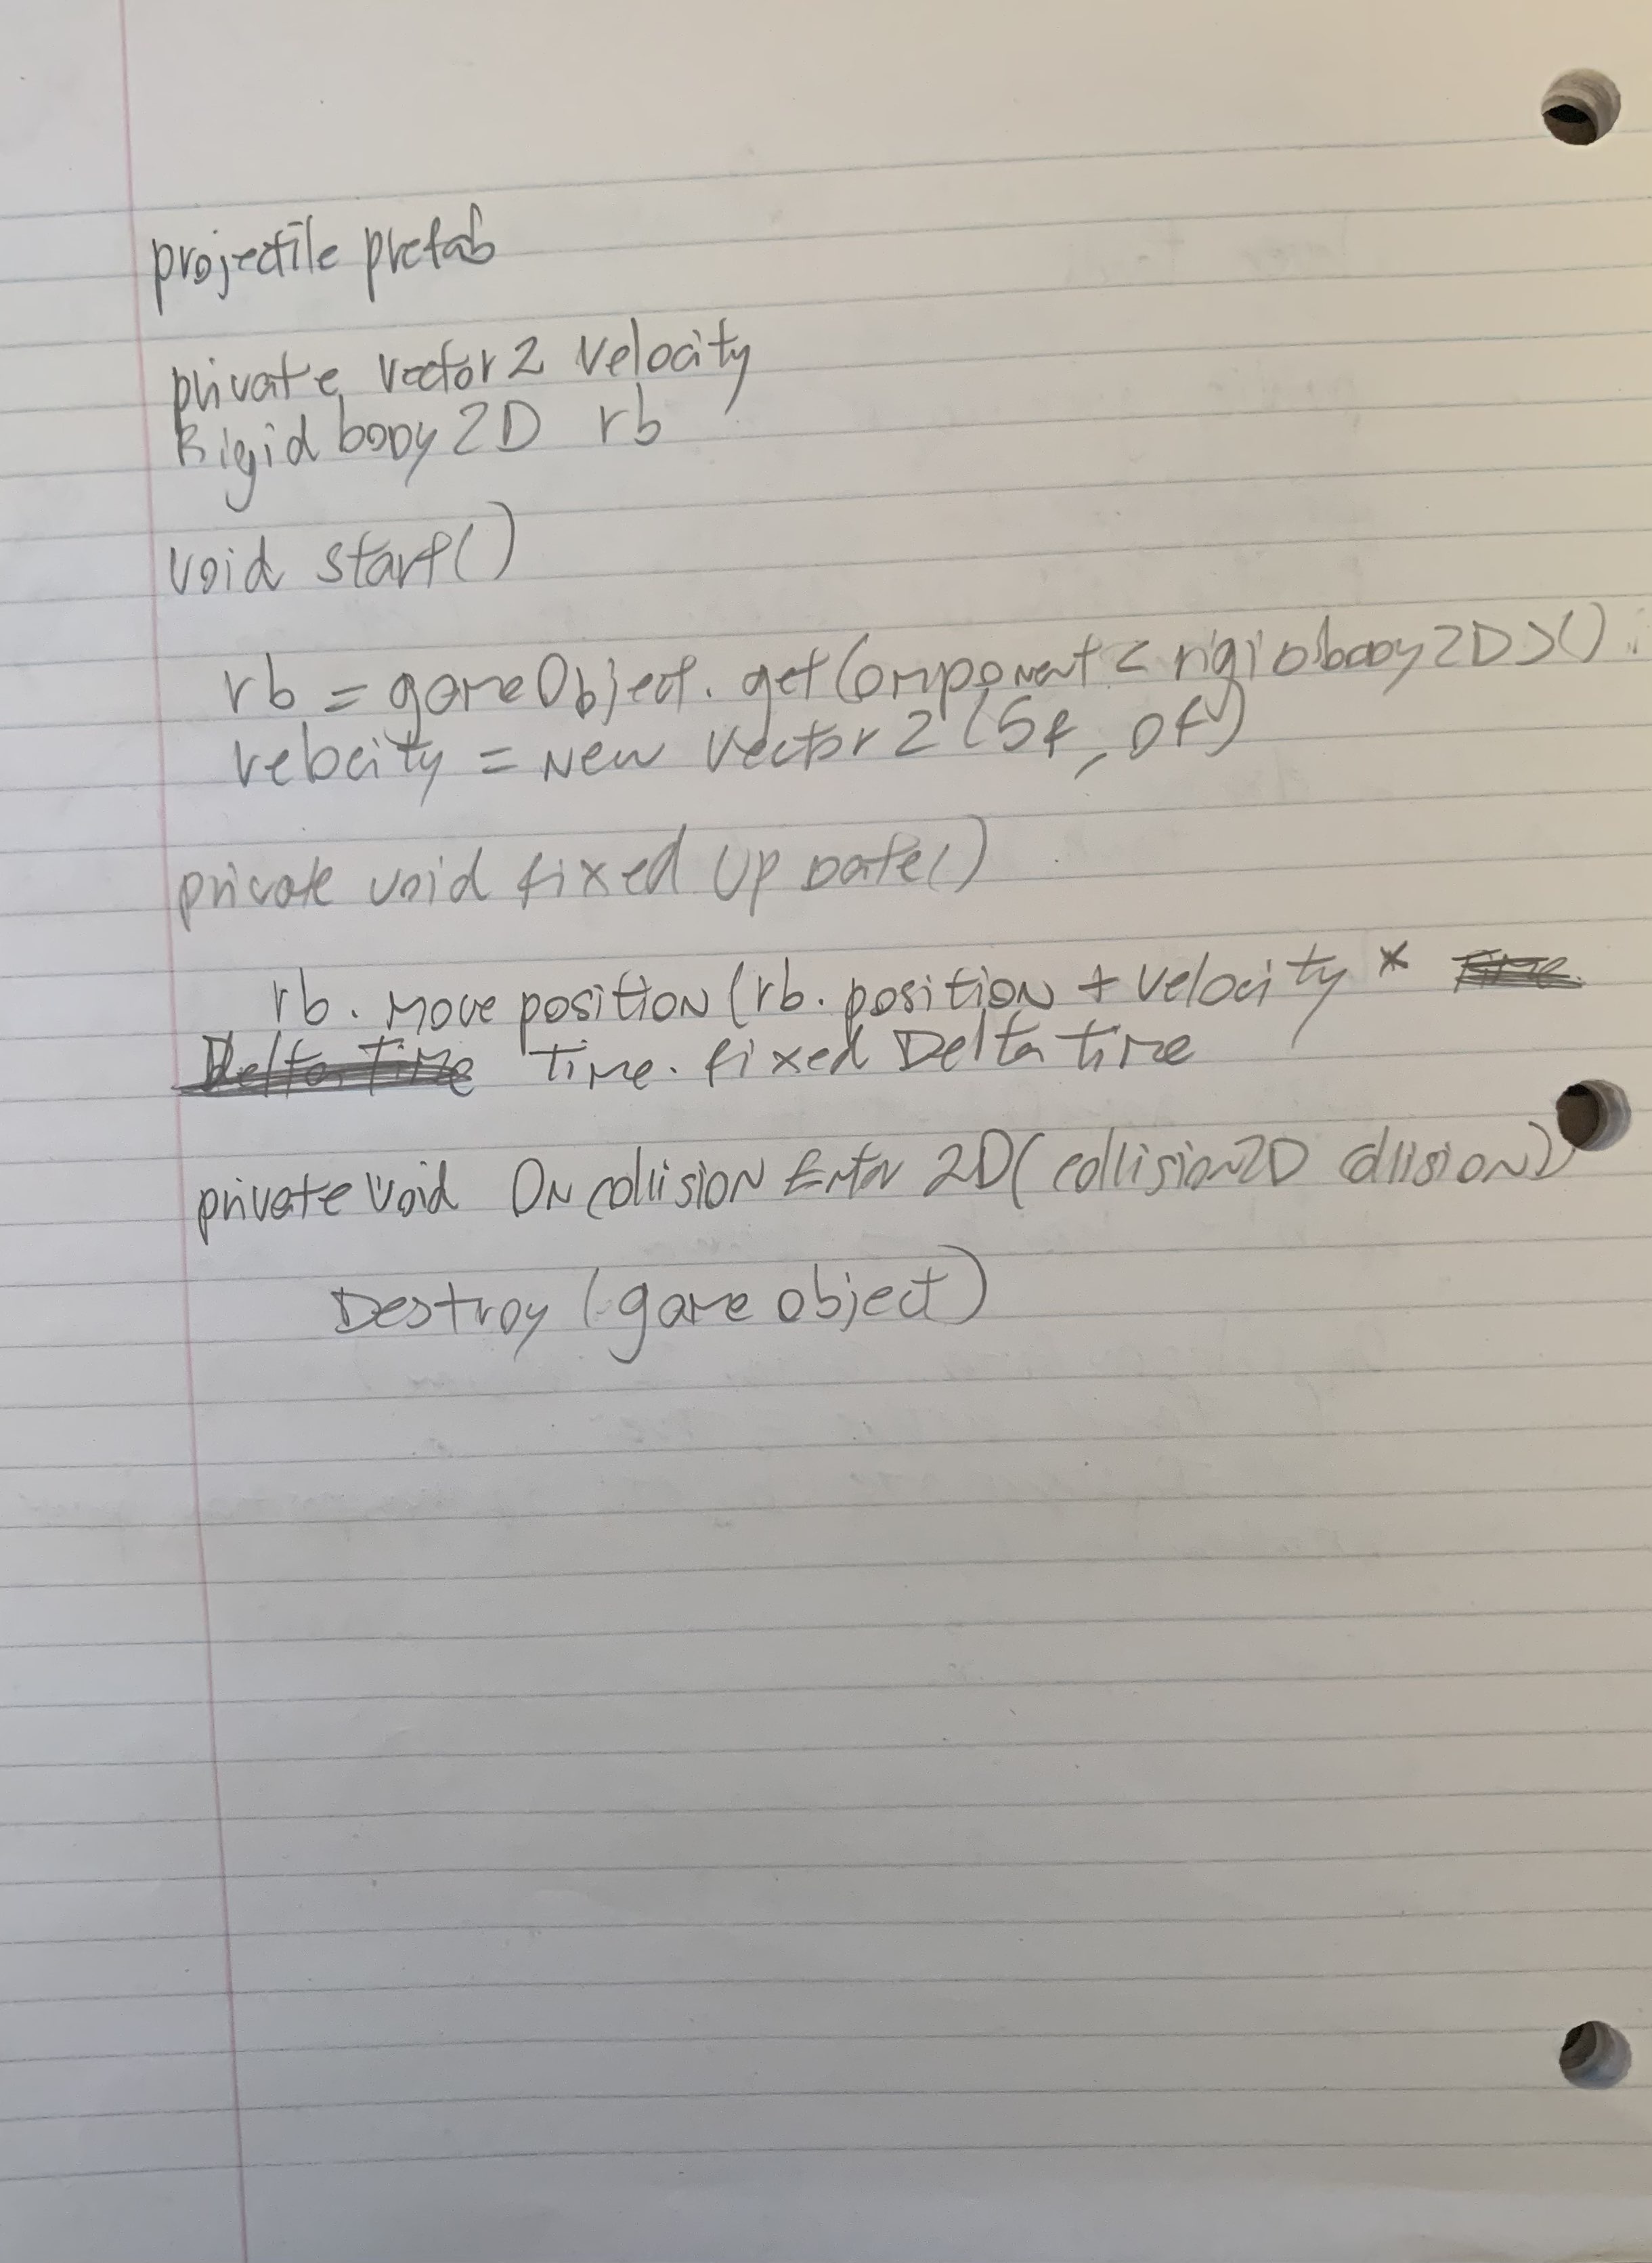 projectile prefab
private vector2 velocity
Rigid body 2D rb
void start()
rb = gameObject. getComponent < rigidbody2D>()
velocity = new vector2 (5f, 0f)
private void fixed UpDate()
rb. Move position (rb. position + velocity * Time.
Delta Time Time. fixed Delta time
private void On collision Enter 2D( collision2D collision)
Destroy (game object)